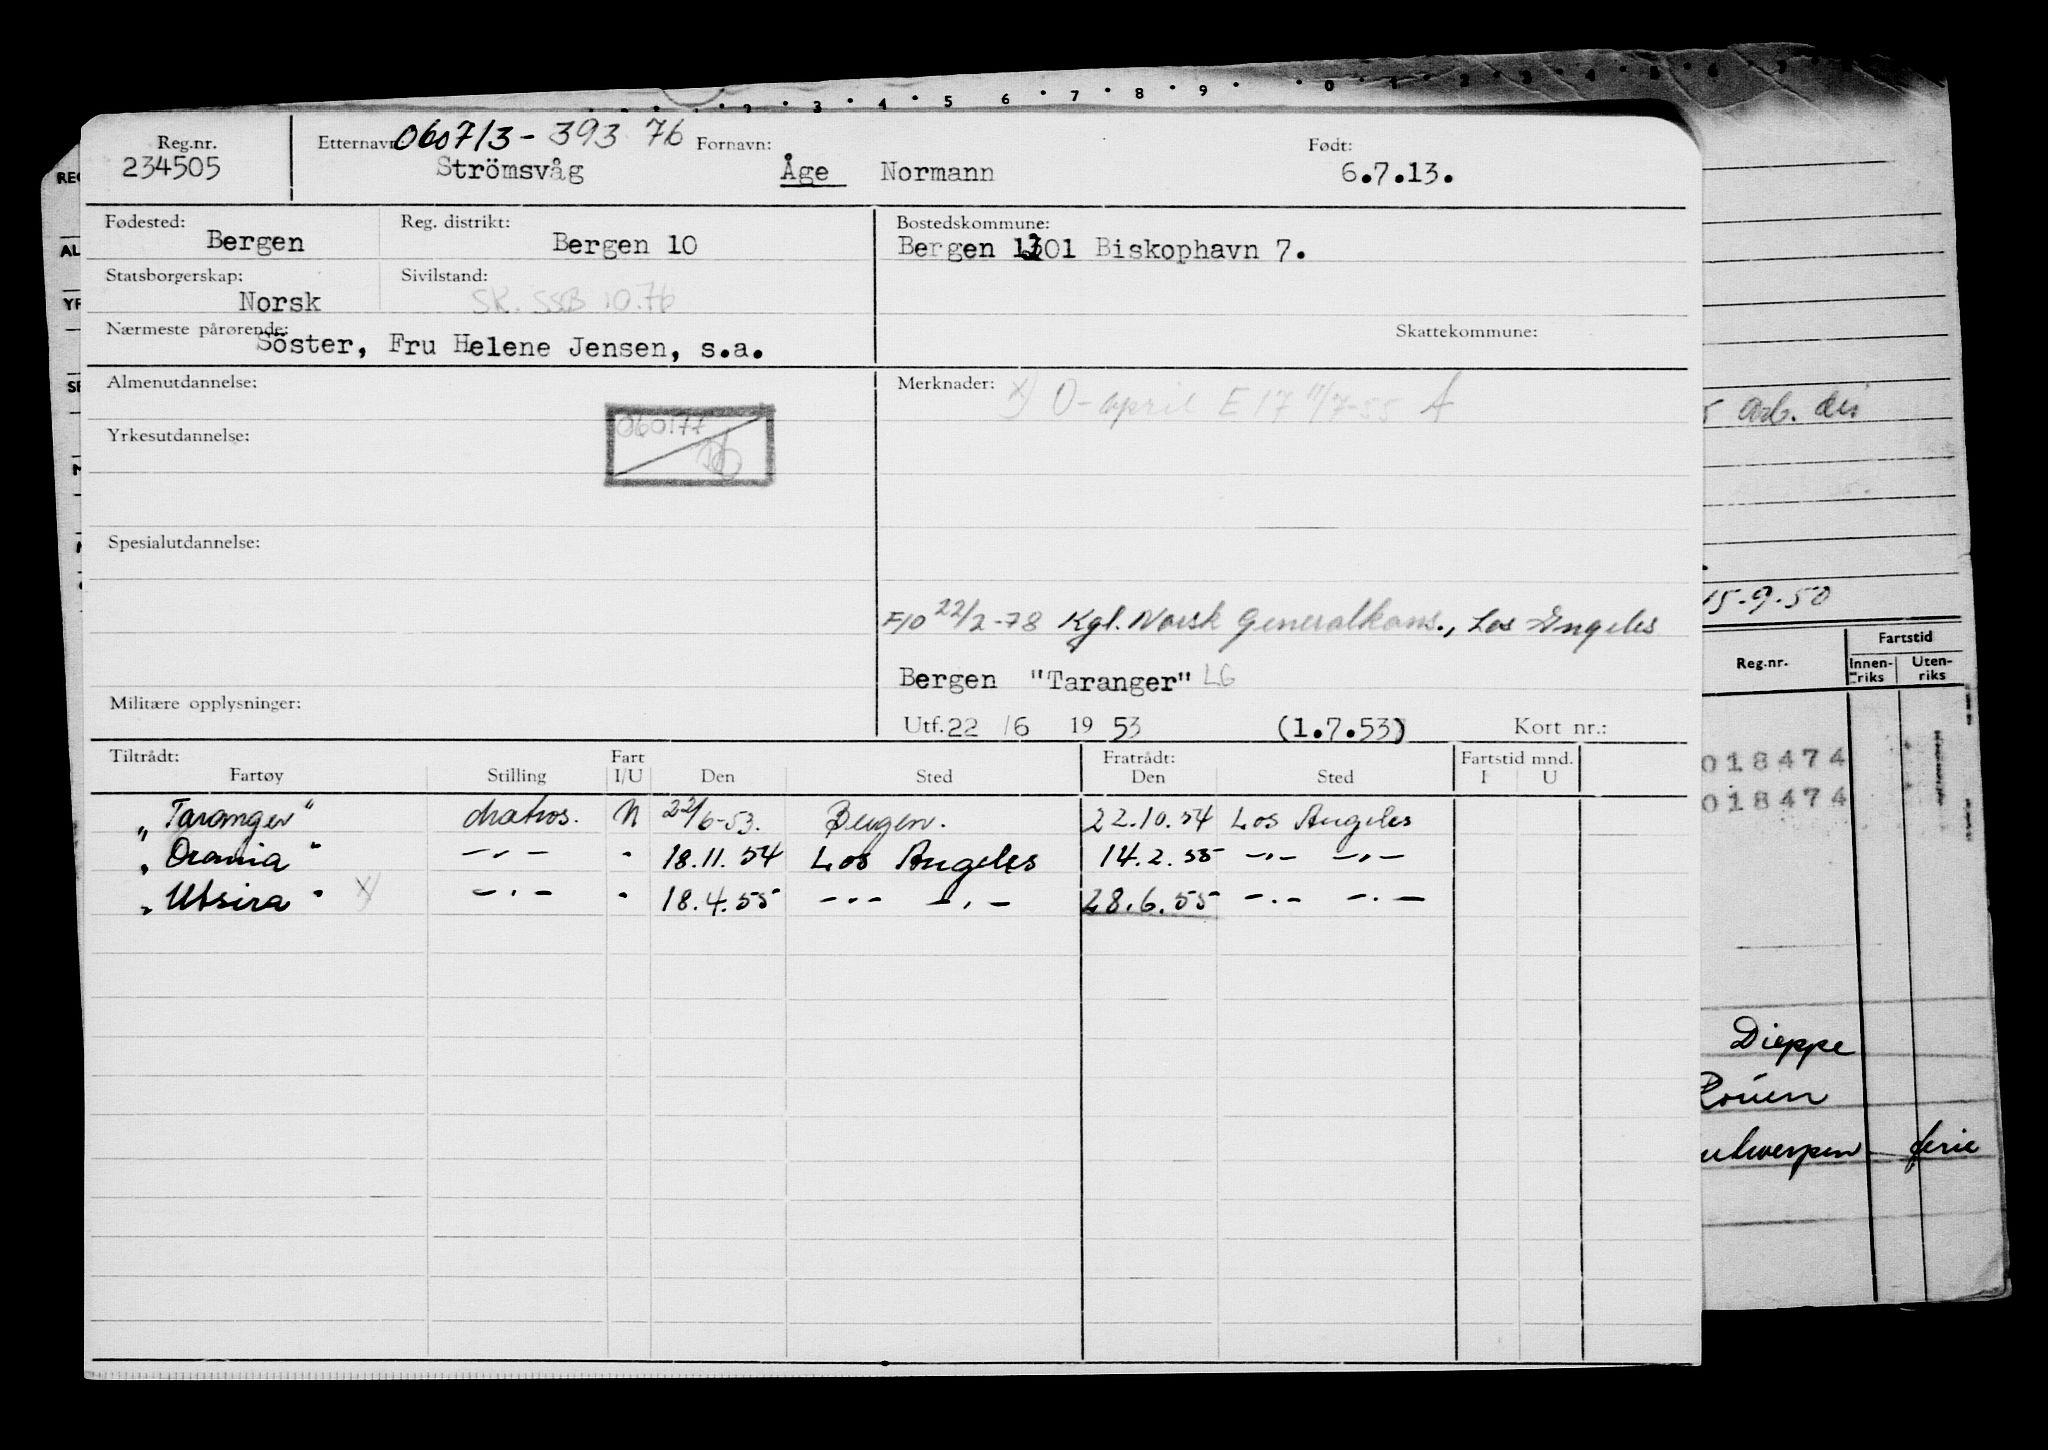 2 3 4 5 6 7 8 9 0 1 2 3 4 5 6 7
Reg.nr. Etternavn 060713 - 393 76 Fornavn: Født:
234505 Strömsvåg Åge Normann 6.7.13.
Fødested: Reg. distrikt: Bostedskommune:
Bergen Bergen 10 Bergen 1301 Biskophavn 7.
Statsborgerskap: Sivilstand:
Norsk SK. SSB 10.76
Nærmeste pårørende: Skattekommune:
Söster, Fru Helene Jensen, s.a.
Almenutdannelse: Merknader: x) O-april E 17 11/7-55 A
060177
Yrkesutdannelse:
Spesialutdannelse:
F/O 22/2-78 Kgl. Norsk Generalkons., Los Angeles
Bergen "Taranger" LG
Militære opplysninger:
Utf. 22 /6 19 53 (1.7.53) Kort nr.:
Tiltrådt: Fart Fratrådt: Fartstid mnd.
Fartøy Stilling I/U Den Sted Den Sted I U
"Taranger" Matros. N 22/6-53. Bergen. 22.10.54 Los Angeles
"Orania" -"- " 18.11.54 Los Angeles 14.2.55 -"- -"-
"Utsira" x) -"- " 18.4.55 -"- -"- 28.6.55 -"- -"-
REG
AL
YR
arb. des
15.9.50
Fartstid
Reg.nr. Innen-riks Uten-riks
018474
018474
Dieppe
Rouen
ferie